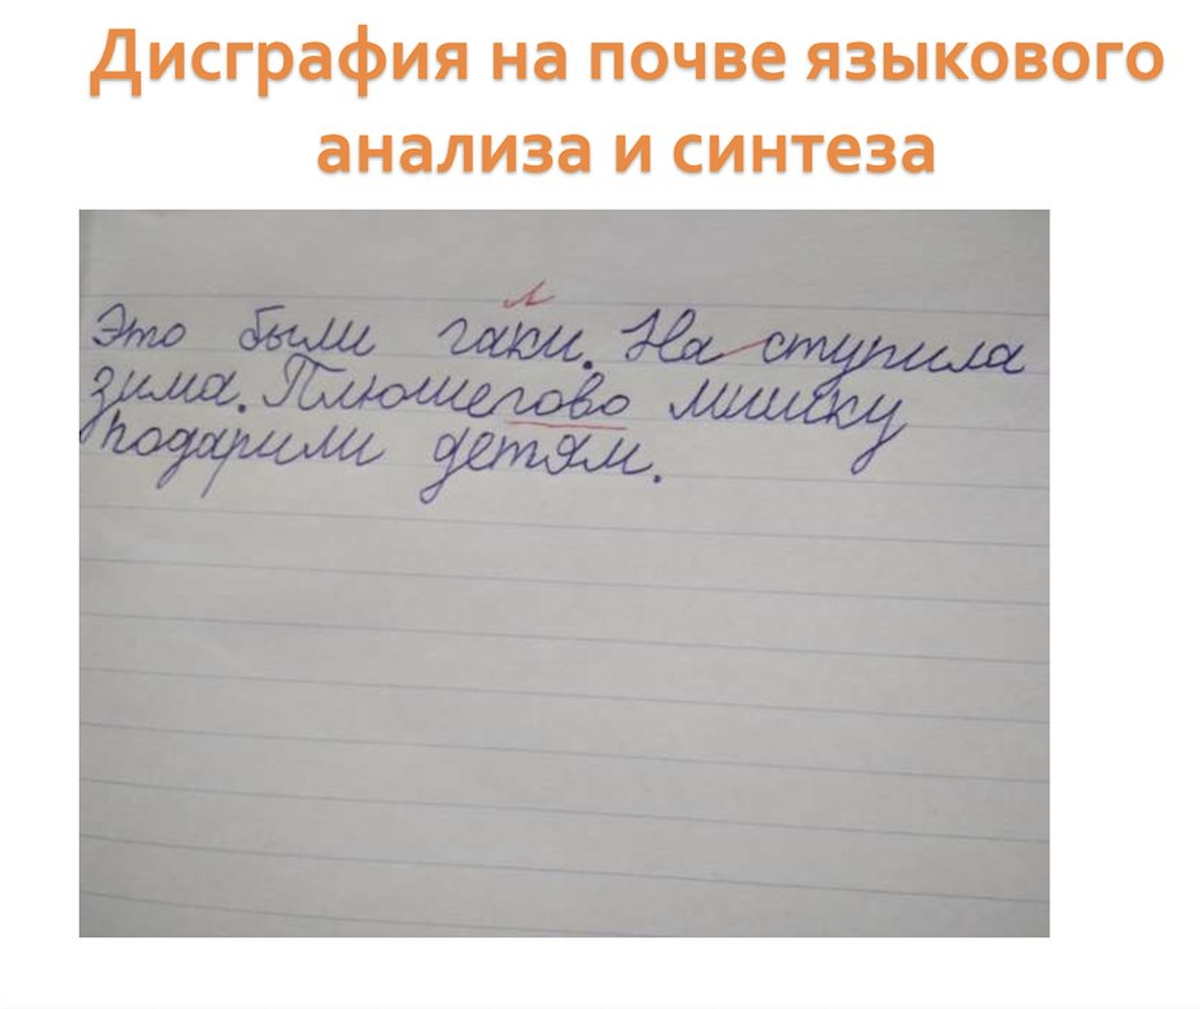 Дисграфия на почве языкового
анализа и синтеза
л
Это были гаки. На ступила
зима. Плюшегово мишку
подарили детям.